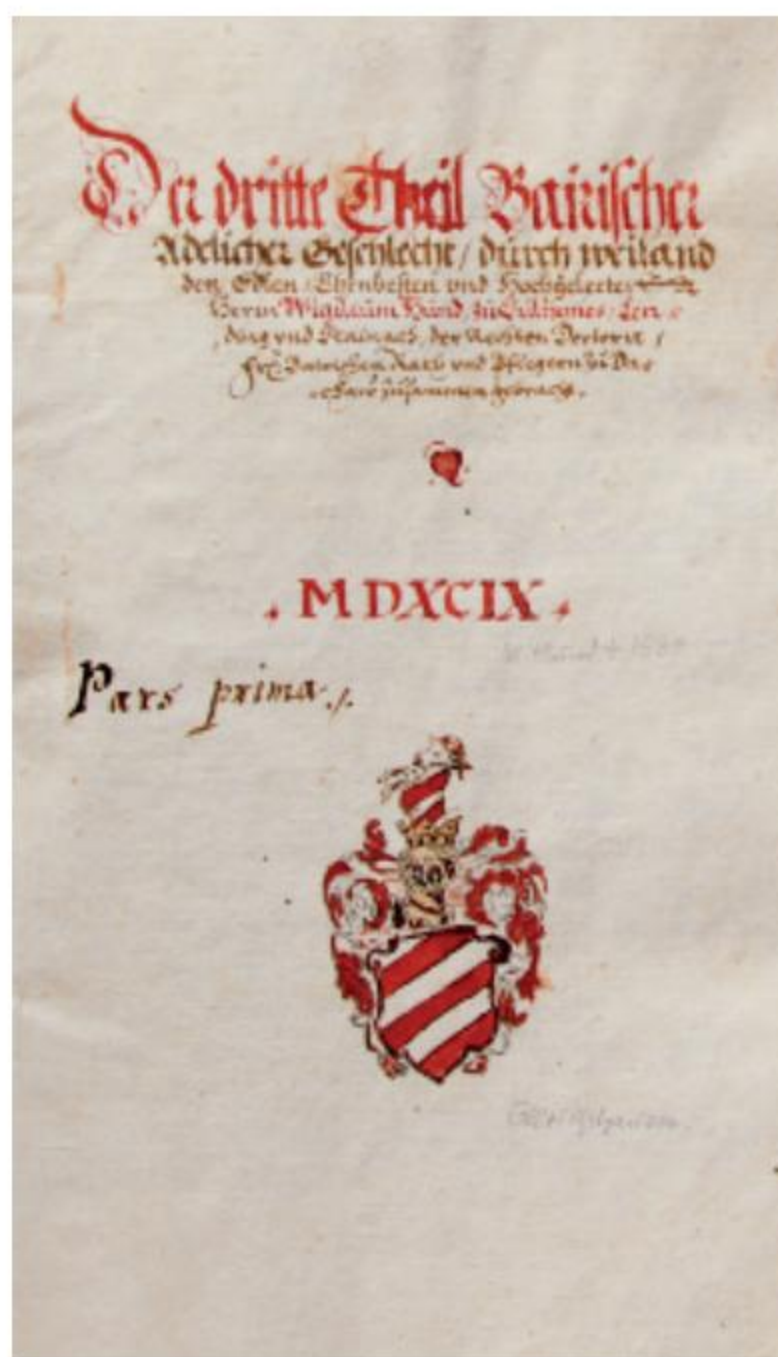 Der dritte Theil Bairischer
Adelicher Geschlecht / durch weiland
den Edlen Ehrnvesten und Hochgelerten
Herrn Wigileum Hund zu
und der Rechten Doctorn /
Rath und Pflegern zu Da=
chaw zusamenen gebracht.
. MDXCIX .
Pars prima ./.